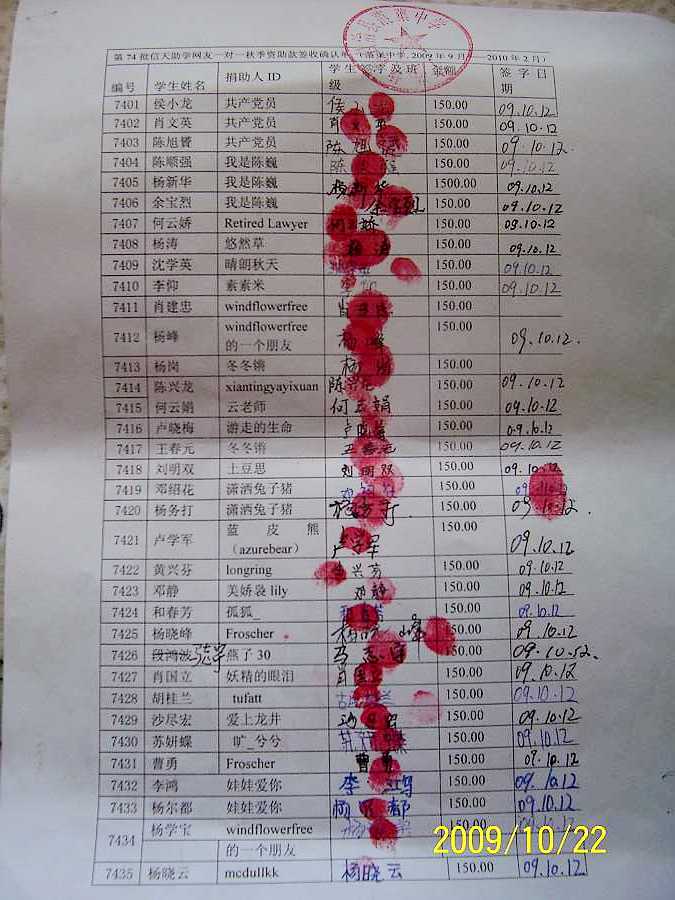 第 74 批信天助学网友一对一秋季资助款签收确认单 2009 年 9 月——2010 年 2 月）
编号 学生姓名 捐助人 ID 学生签字及班级 金额 签字日期
7401 侯小龙 共产党员 侯 150.00 09.10.12
7402 肖文英 共产党员 肖文英 150.00 09.10.12
7403 陈旭 共产党员 陈旭 150.00 09.10.12.
7404 陈顺强 我是陈巍 陈 强 150.00 09.10.12
7405 杨新华 我是陈巍 杨新华 1500.00 09.10.12
7406 余宝烈 我是陈巍 余宝烈 150.00 09.10.12
7407 何云娇 Retired Lawyer 何云娇 150.00 09.10.12
7408 杨涛 悠然草 杨涛 150.00 09.10.12
7409 沈学英 晴朗秋天 150.00 09.10.12
7410 李仰 素素米 李仰 150.00 09.10.12
7411 肖建忠 windflowerfree 肖建忠 150.00
7412 杨峰 windflowerfree 的一个朋友 杨峰 150.00 09.10.12.
7413 杨岗 冬冬锵 杨岗 150.00
7414 陈兴龙 xiantingyayixuan 陈兴龙 150.00 09.10.12
7415 何云娟 云老师 何云娟 150.00 09.10.12
7416 卢晓梅 游走的生命 卢晓梅 150.00 09.10.12
7417 王春元 冬冬锵 王春元 150.00 09.10.12
7418 刘明双 土豆思 刘明双 150.00 09.10.12
7419 邓绍花 潇洒兔子猪 邓绍花 150.00 09.10.12
7420 杨务打 潇洒兔子猪 杨务打 150.00 09.10.12.
7421 卢学军 蓝皮熊（azurebear） 卢学军 150.00 09.10.12
7422 黄兴芬 longring 兴芬 150.00 09.10.12
7423 邓静 美娇袅 lily 邓静 150.00 09.10.12
7424 和春芳 孤狐_ 和春芳 150.00 09.10.12
7425 杨晓峰 Froscher 杨晓峰 150.00 09.10.12
7426 段鸿波 燕子 30 马志军 150.00 09.10.12.
7427 肖国立 妖精的眼泪 肖国立 150.00 09.10.12
7428 胡桂兰 tufatt 胡桂兰 150.00 09.10.12
7429 沙尽宏 爱上龙井 沙尽宏 150.00 09.10.12
7430 苏妍蝶 旷_兮兮 苏妍蝶 150.00 09.10.12
7431 曹勇 Froscher 曹勇 150.00 09.10.12
7432 李鸿 娃娃爱你 李鸿 150.00 09.10.12
7433 杨尔都 娃娃爱你 杨尔都 150.00 09.10.12
7434 杨学宝 windflowerfree 的一个朋友 杨学宝 150.00 09.10.12
7435 杨晓云 mcdullkk 杨晓云 150.00 09.10.12
2009/10/22